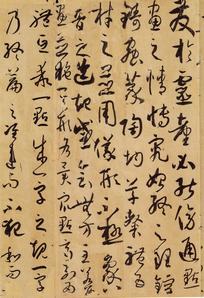 發於靈臺必能傍通點
畫之情博究始終之理鎔
鑄蟲篆陶均草隸體五
材之並用儀形不極象八
音之迭起感會無方至若數
畫並施其形各異眾點齊列為
體互乖一點成一字之規一字
乃終篇之準違而不犯和而